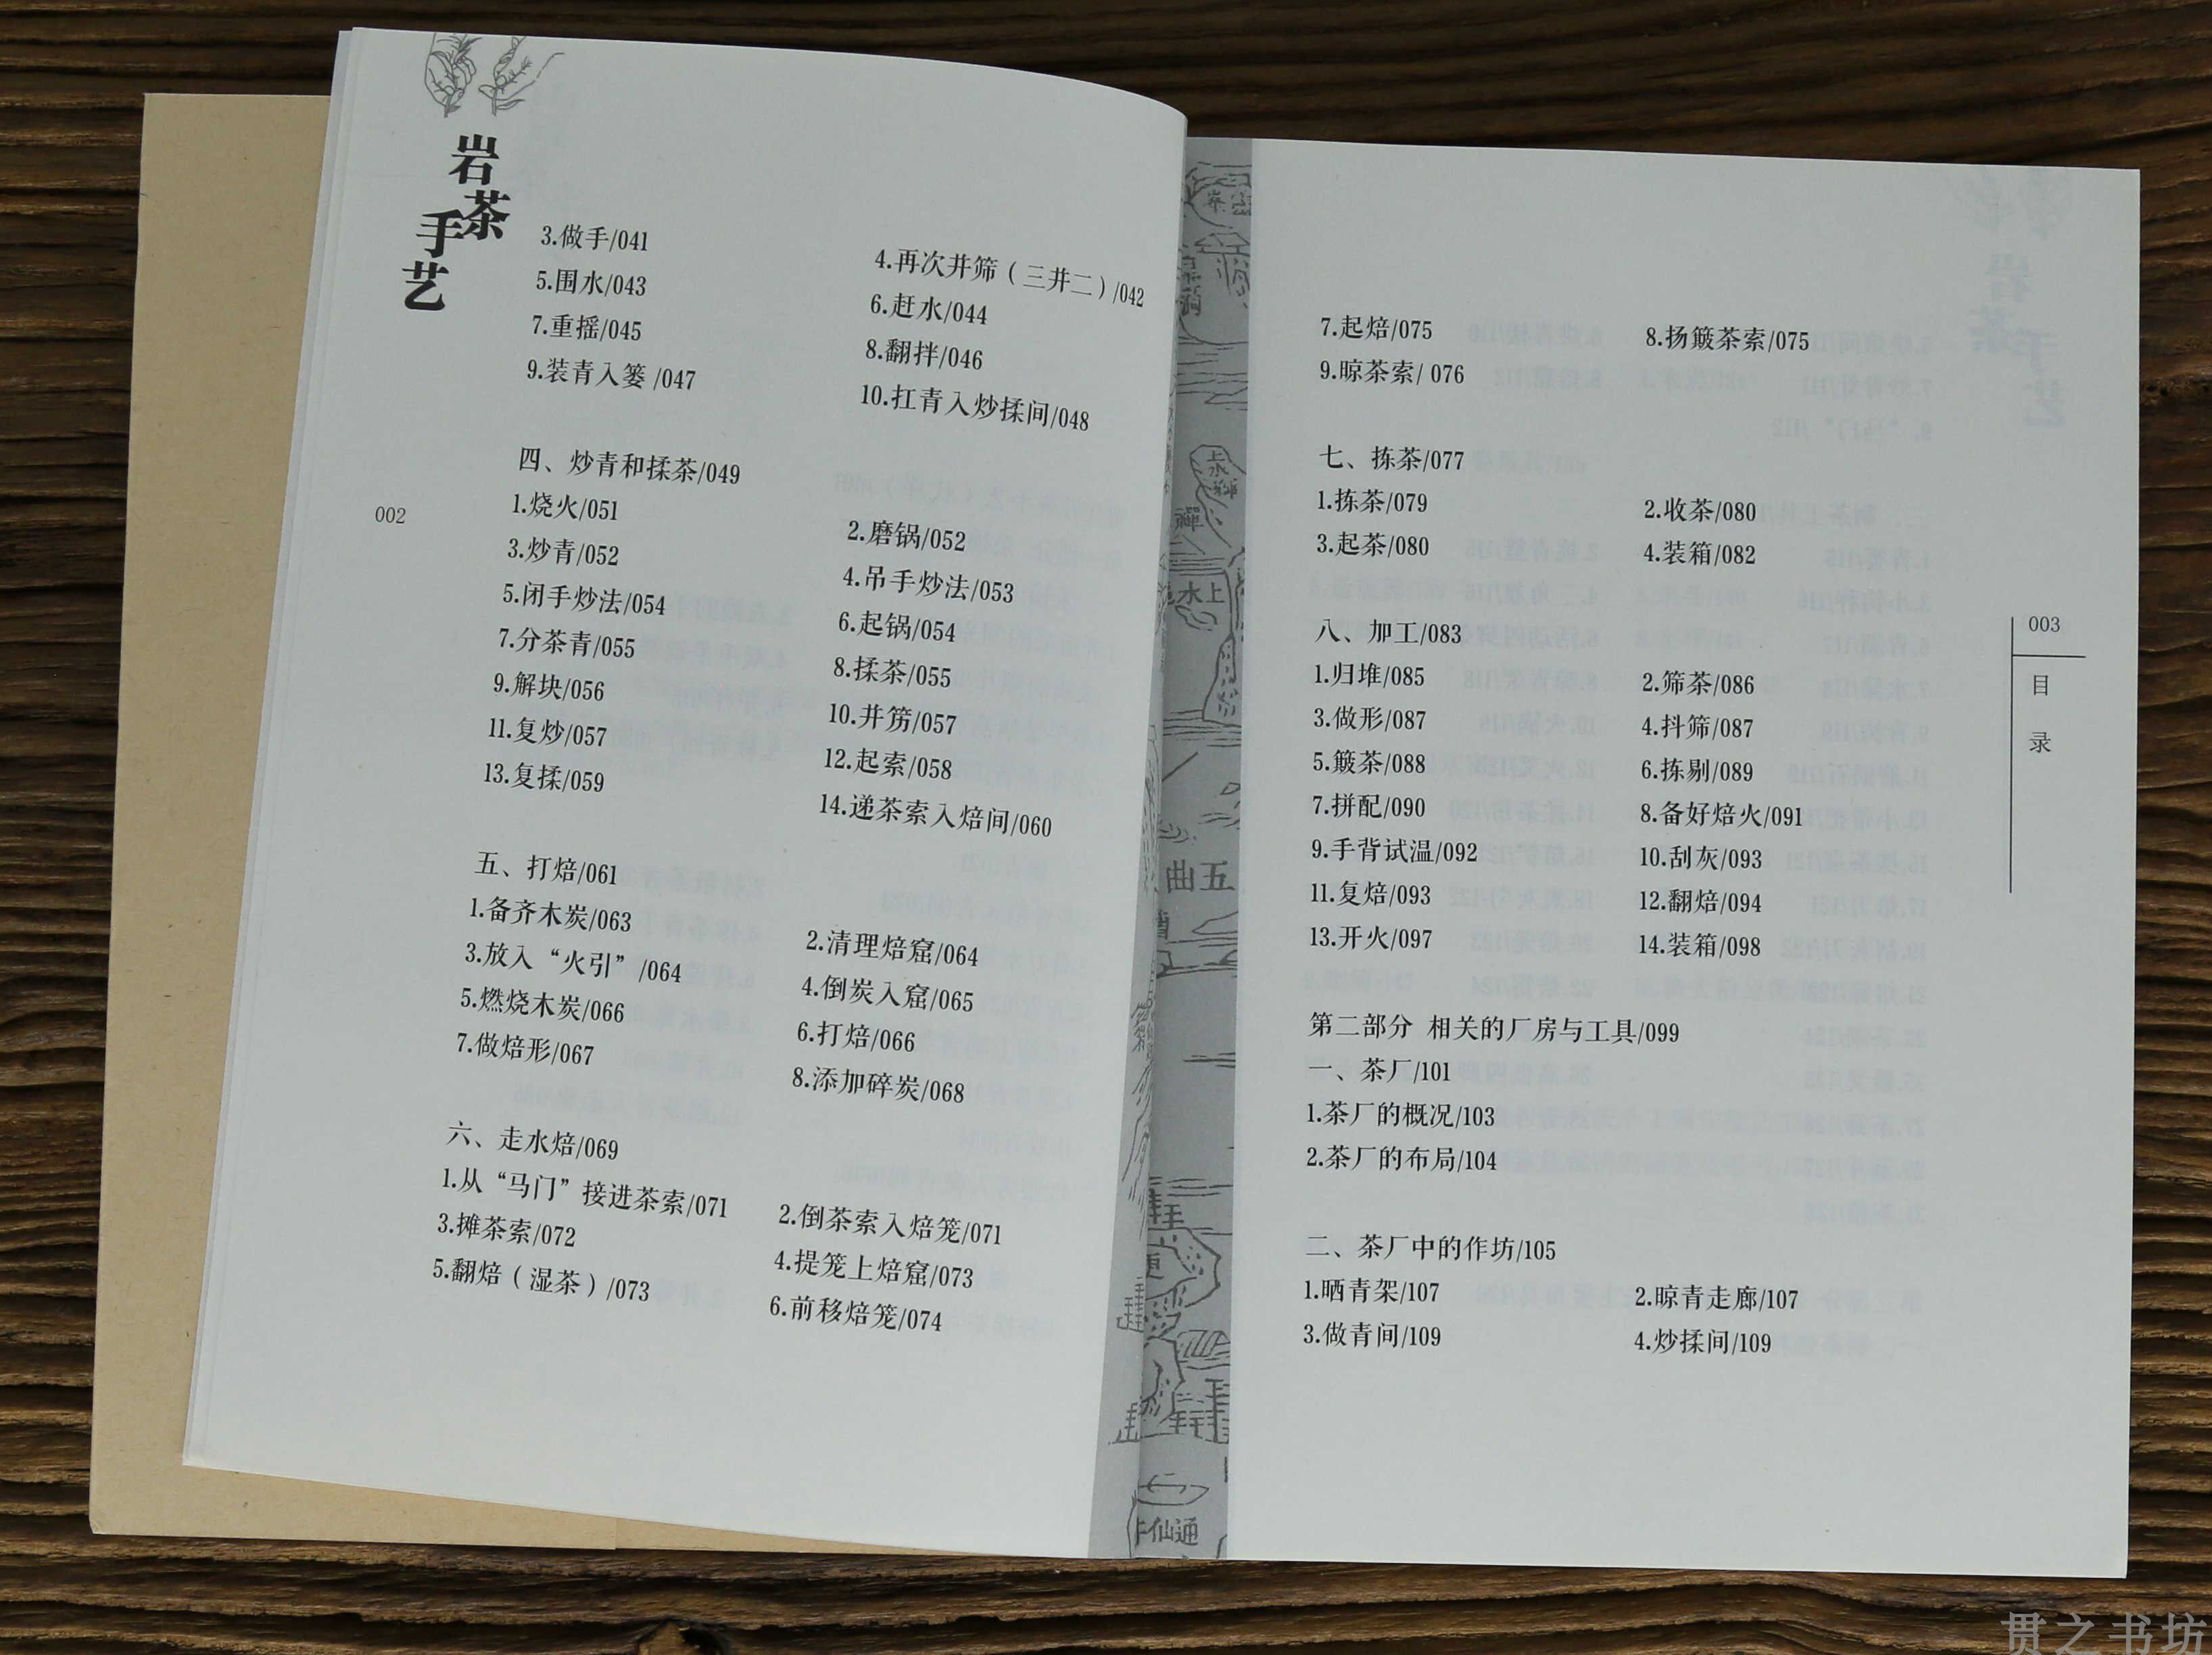 岩茶手艺
002
3.做手/041
4.再次并筛（三并二）/042
5.围水/043
6.赶水/044
7.重摇/045
8.翻拌/046
9.装青入篓 /047
10.扛青入炒揉间/048
四、炒青和揉茶/049
1.烧火/051
2.磨锅/052
3.炒青/052
4.吊手炒法/053
5.闭手炒法/054
6.起锅/054
7.分茶青/055
8.揉茶/055
9.解块/056
10.并篣/057
11.复炒/057
12.起索/058
13.复揉/059
14.递茶索入焙间/060
五、打焙/061
1.备齐木炭/063
2.清理焙窟/064
3.放入“火引” /064
4.倒炭入窟/065
5.燃烧木炭/066
6.打焙/066
7.做焙形/067
8.添加碎炭/068
六、走水焙/069
1.从“马门”接进茶索/071
2.倒茶索入焙笼/071
3.摊茶索/072
4.提笼上焙窟/073
5.翻焙（湿茶）/073
6.前移焙笼/074
上水
五曲
7.起焙/075
8.扬簸茶索/075
9.晾茶索/ 076
七、拣茶/077
1.拣茶/079
2.收茶/080
3.起茶/080
4.装箱/082
八、加工/083
1.归堆/085
2.筛茶/086
3.做形/087
4.抖筛/087
5.簸茶/088
6.拣剔/089
7.拼配/090
8.备好焙火/091
9.手背试温/092
10.刮灰/093
11.复焙/093
12.翻焙/094
13.开火/097
14.装箱/098
第二部分 相关的厂房与工具/099
一、茶厂/101
1.茶厂的概况/103
2.茶厂的布局/104
二、茶厂中的作坊/105
1.晒青架/107
2.晾青走廊/107
3.做青间/109
4.炒揉间/109
003
目录
贯之书坊